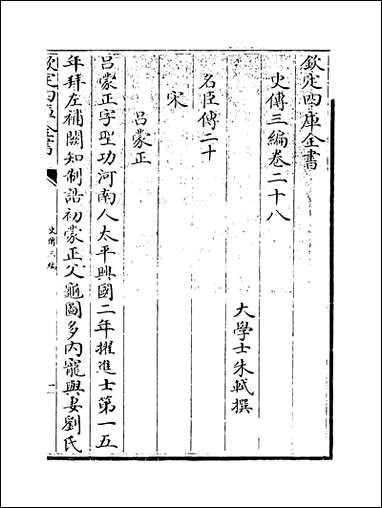 欽定四庫全書
史傳三編卷二十八
大學士朱軾撰
名臣傳二十
宋
吕蒙正
吕蒙正字聖功河南人太平興國二年擢進士第一五
年拜左補闕知制誥初蒙正父龜圖多内寵與妻劉氏
欽定四庫全書
史傳三編
一